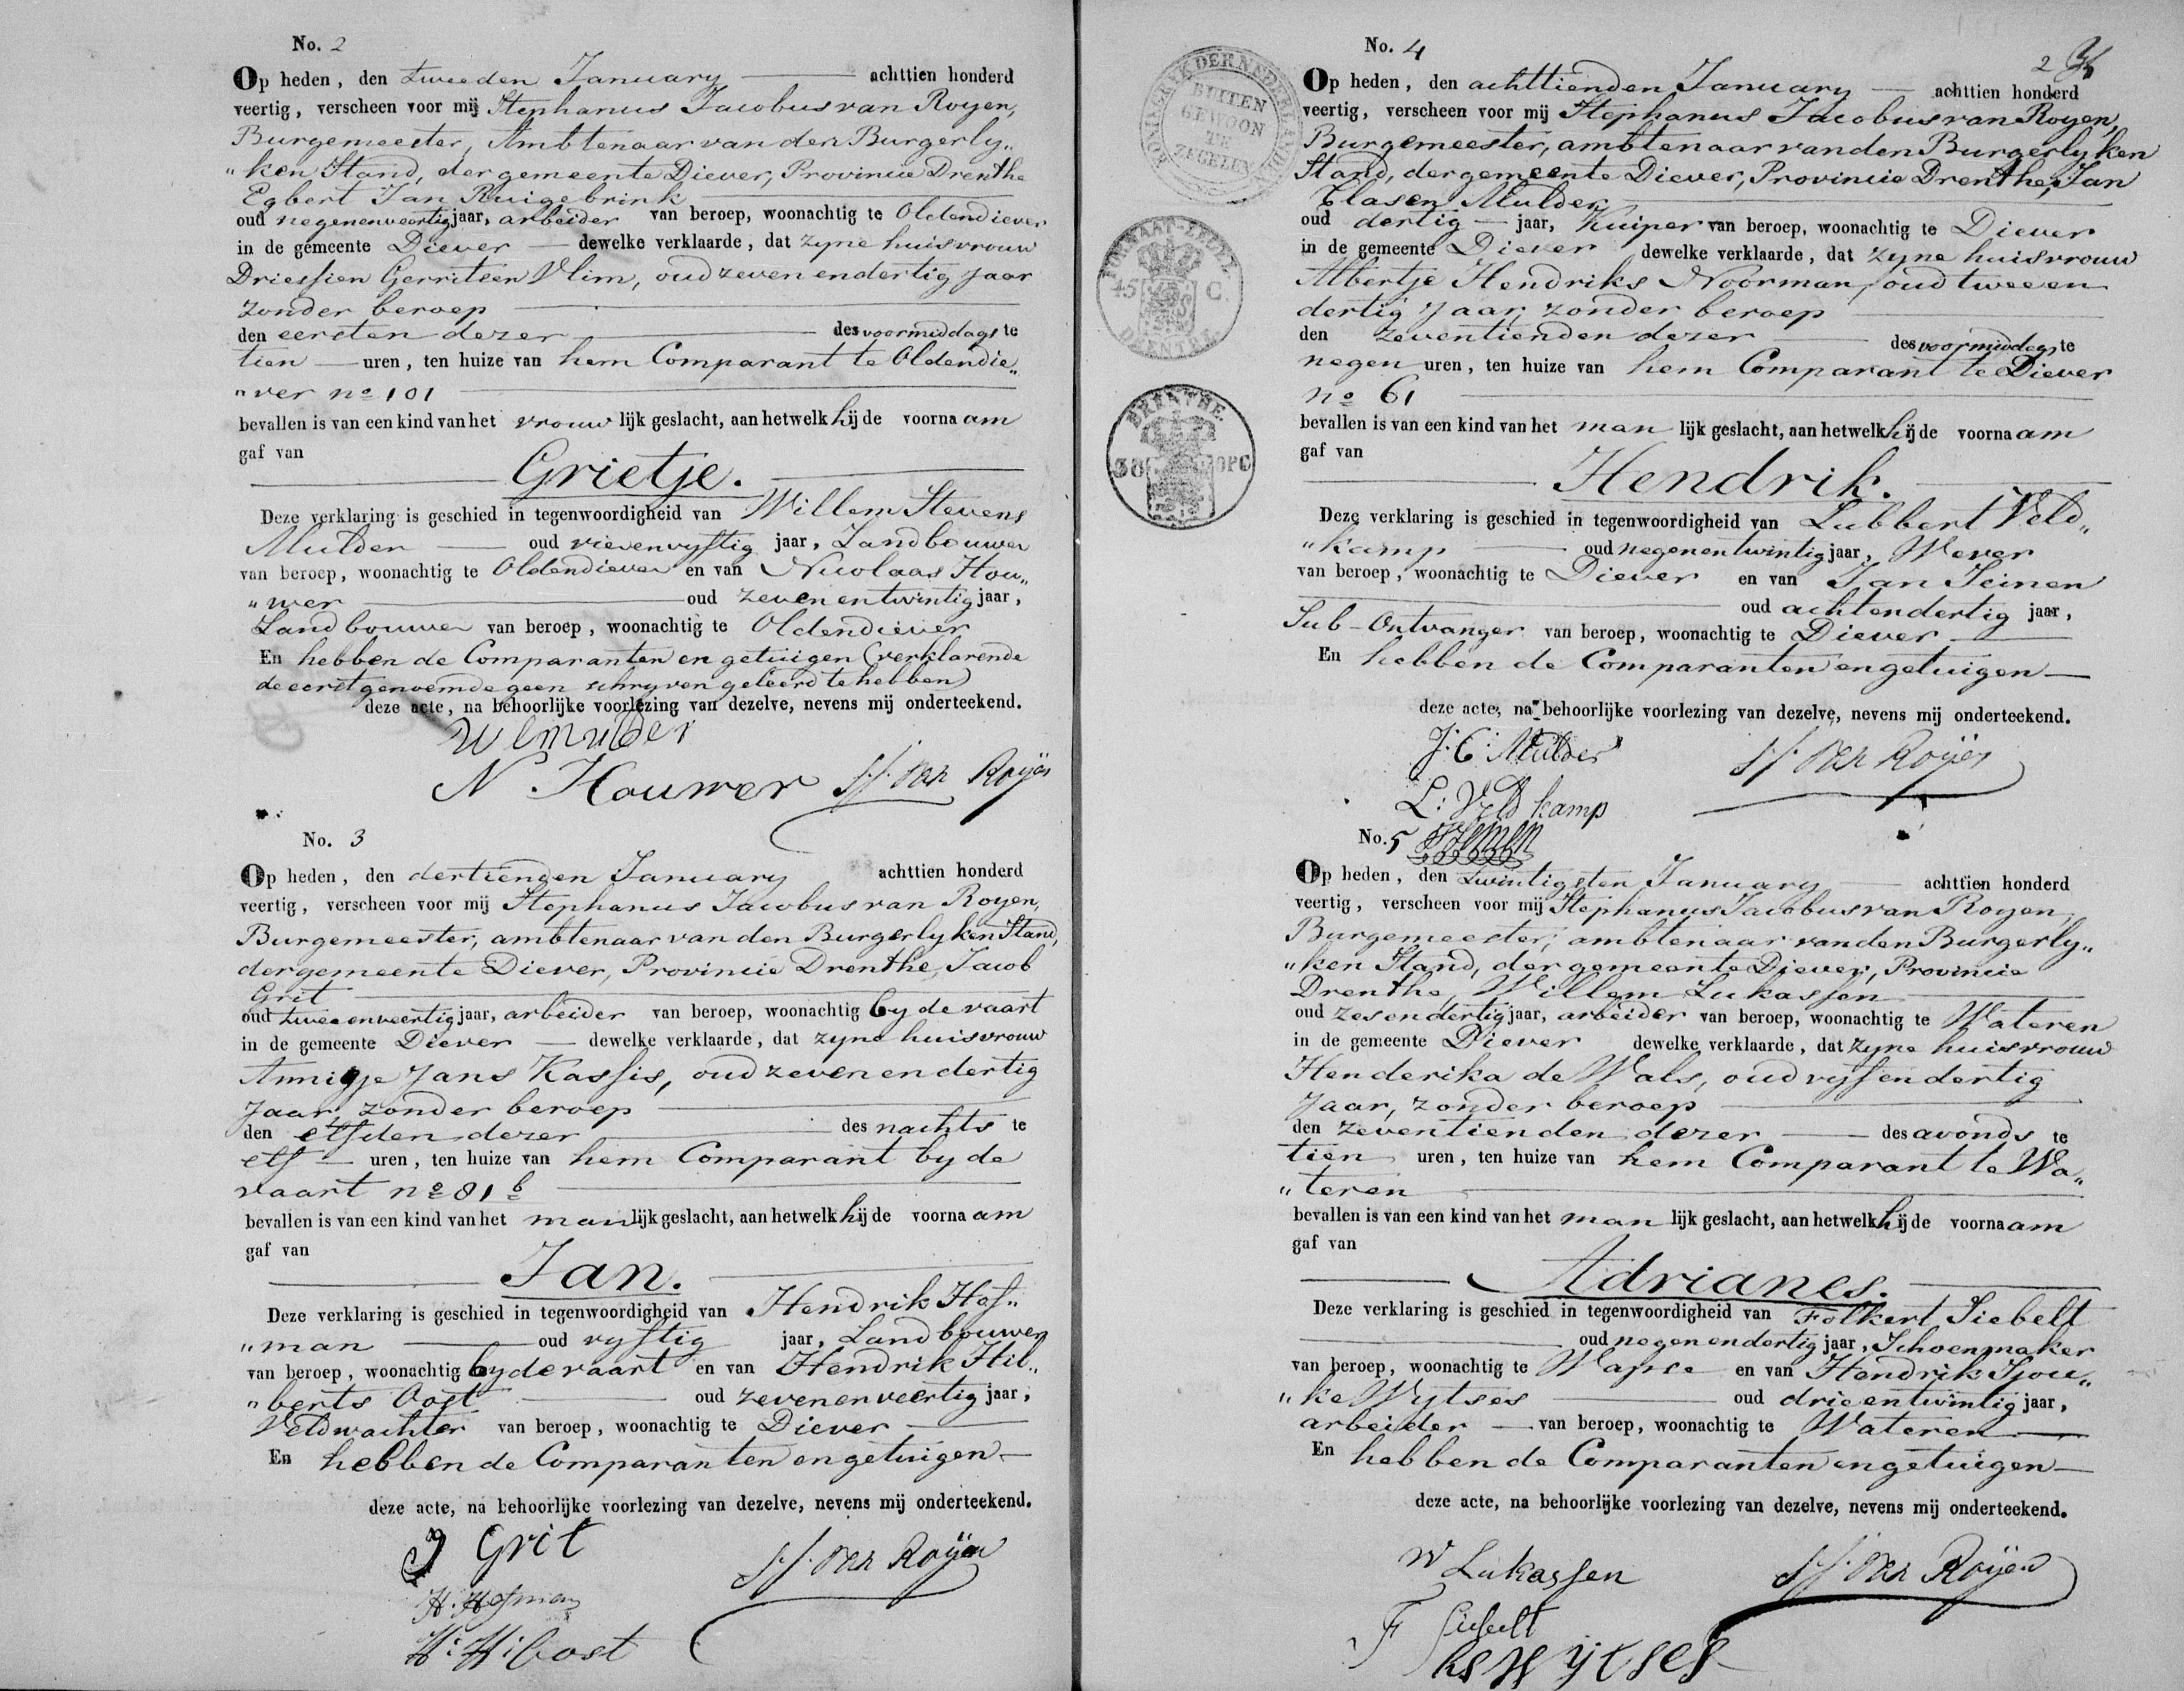 No. 2
Op heden, den tweeden January achttien honderd
veertig, verscheen voor mij Stephanus Jacobus van Royen,
Burgemeester, Ambtenaar van den Burgerly„
„ken Stand, der gemeente Diever, Provincie Drenthe
Egbert Jan Ruigebrink
oud negenenveertig jaar, arbeider van beroep, woonachtig te Oldendiever
in de gemeente Diever dewelke verklaarde, dat zyne huisvrouw
Driessien Gerritsen Vlim, oud zeven en dertig jaar
zonder beroep
den eersten dezer des voormiddags te
tien uren, ten huize van hem Comparant te Oldendie„
„ver no 101
bevallen is van een kind van het vrouwlijk geslacht, aan hetwelk hij de voornaam
gaf van
Grietje.
Deze verklaring is geschied in tegenwoordigheid van Willem Stevens
Mulder oud vierenvyftig jaar, Landbouwer
van beroep, woonachtig te Oldendiever en van Nicolaas Hou„
„wer oud zeven en twintig jaar,
Landbouwer van beroep, woonachtig te Oldendiever
En hebben de Comparanten en getuigen (verklarende
de eerstgenoemde geen schryven geleerd te hebben)
deze acte, na behoorlijke voorlezing van dezelve, nevens mij onderteekend.
Mulder
N. Houwer S.J. van Royen
No. 3
Op heden, den dertienden January achttien honderd
veertig, verscheen voor mij Stephanus Jacobus van Royen,
Burgemeester, ambtenaar van den Burgerlyken Stand,
der gemeente Diever, Provincie Drenthe, Jacob
Grit
oud twee enveertig jaar, arbeider van beroep, woonachtig by de vaart
in de gemeente Diever dewelke verklaarde, dat zyne huisvrouw
Annigje Jans Kassis, oud zeven en dertig
Jaar, zonder beroep
den elfden dezer des nachts te
elf uren, ten huize van hem Comparant by de
vaart no 81 b
bevallen is van een kind van het manlijk geslacht, aan hetwelk hij de voornaam
gaf van
Jan.
Deze verklaring is geschied in tegenwoordigheid van Hendrik Hof„
„man oud vyftig jaar, Landbouwer
van beroep, woonachtig by de vaart en van Hendrik Hil„
„berts Oost oud zeven en veertig jaar,
Veldwachter van beroep, woonachtig te Diever
En hebben de Comparanten en getuigen
deze acte, na behoorlijke voorlezing van dezelve, nevens mij onderteekend.
J Grit
S.J. van Royen
H. Hofman
H: H: Oost
2
KONINGRIJK DER NEDERLANDEN
BUITEN
GEWOON
TE
ZEGELEN
FORMAAT-ZEGEL
45 C.
DRENTHE
DRENTHE.
38 OPC
No. 4
Op heden, den achttienden January achttien honderd
veertig, verscheen voor mij Stephanus Jacobus van Royen,
Burgemeester, ambtenaar van den Burgerlyken
Stand, der gemeente Diever, Provincie Drenthe, Jan
Clasen Mulder
oud dertig jaar, Kuiper van beroep, woonachtig te Diever
in de gemeente Diever dewelke verklaarde, dat zyne huisvrouw
Albertje Hendriks Noorman, oud twee en
dertig jaar, zonder beroep
den zeventienden dezer des voormiddags te
negen uren, ten huize van hem Comparant te Diever
no 61
bevallen is van een kind van het manlijk geslacht, aan hetwelk hij de voornaam
gaf van
Hendrik.
Deze verklaring is geschied in tegenwoordigheid van Lubbert Veld„
„kamp oud negen en twintig jaar, Wever
van beroep, woonachtig te Diever en van Jan Seinen
oud achtendertig jaar,
Sub-Ontvanger van beroep, woonachtig te Diever
En hebben de Comparanten en getuigen
deze acte, na behoorlijke voorlezing van dezelve, nevens mij onderteekend.
J: C: Mulder
S.J. van Royen
L: Veldkamp
No. 5
Op heden, den twintigsten January achttien honderd
veertig, verscheen voor mij Stephanus Jacobus van Royen,
Burgemeester, ambtenaar van den Burgerly„
„ken Stand, der gemeente Diever, Provincie
Drenthe, Willem Lukassen
oud zesendertig jaar, arbeider van beroep, woonachtig te Wateren
in de gemeente Diever dewelke verklaarde, dat zyne huisvrouw
Henderika de Wals, oud vyf en dertig
Jaar, zonder beroep
den zeventienden dezer des avonds te
tien uren, ten huize van hem Comparant te Wa„
„teren
bevallen is van een kind van het manlijk geslacht, aan hetwelk hij de voornaam
gaf van
Adrianes.
Deze verklaring is geschied in tegenwoordigheid van Folkert Siebelt
oud negen en dertig jaar, Schoenmaker
van beroep, woonachtig te Wapse en van Hendrik Sjou„
„ke Wytses oud drie en twintig jaar,
arbeider van beroep, woonachtig te Wateren
En hebben de Comparanten en getuigen
deze acte, na behoorlijke voorlezing van dezelve, nevens mij onderteekend.
W Lukassen
S.J. van Royen
F Siebelt
Wijtses